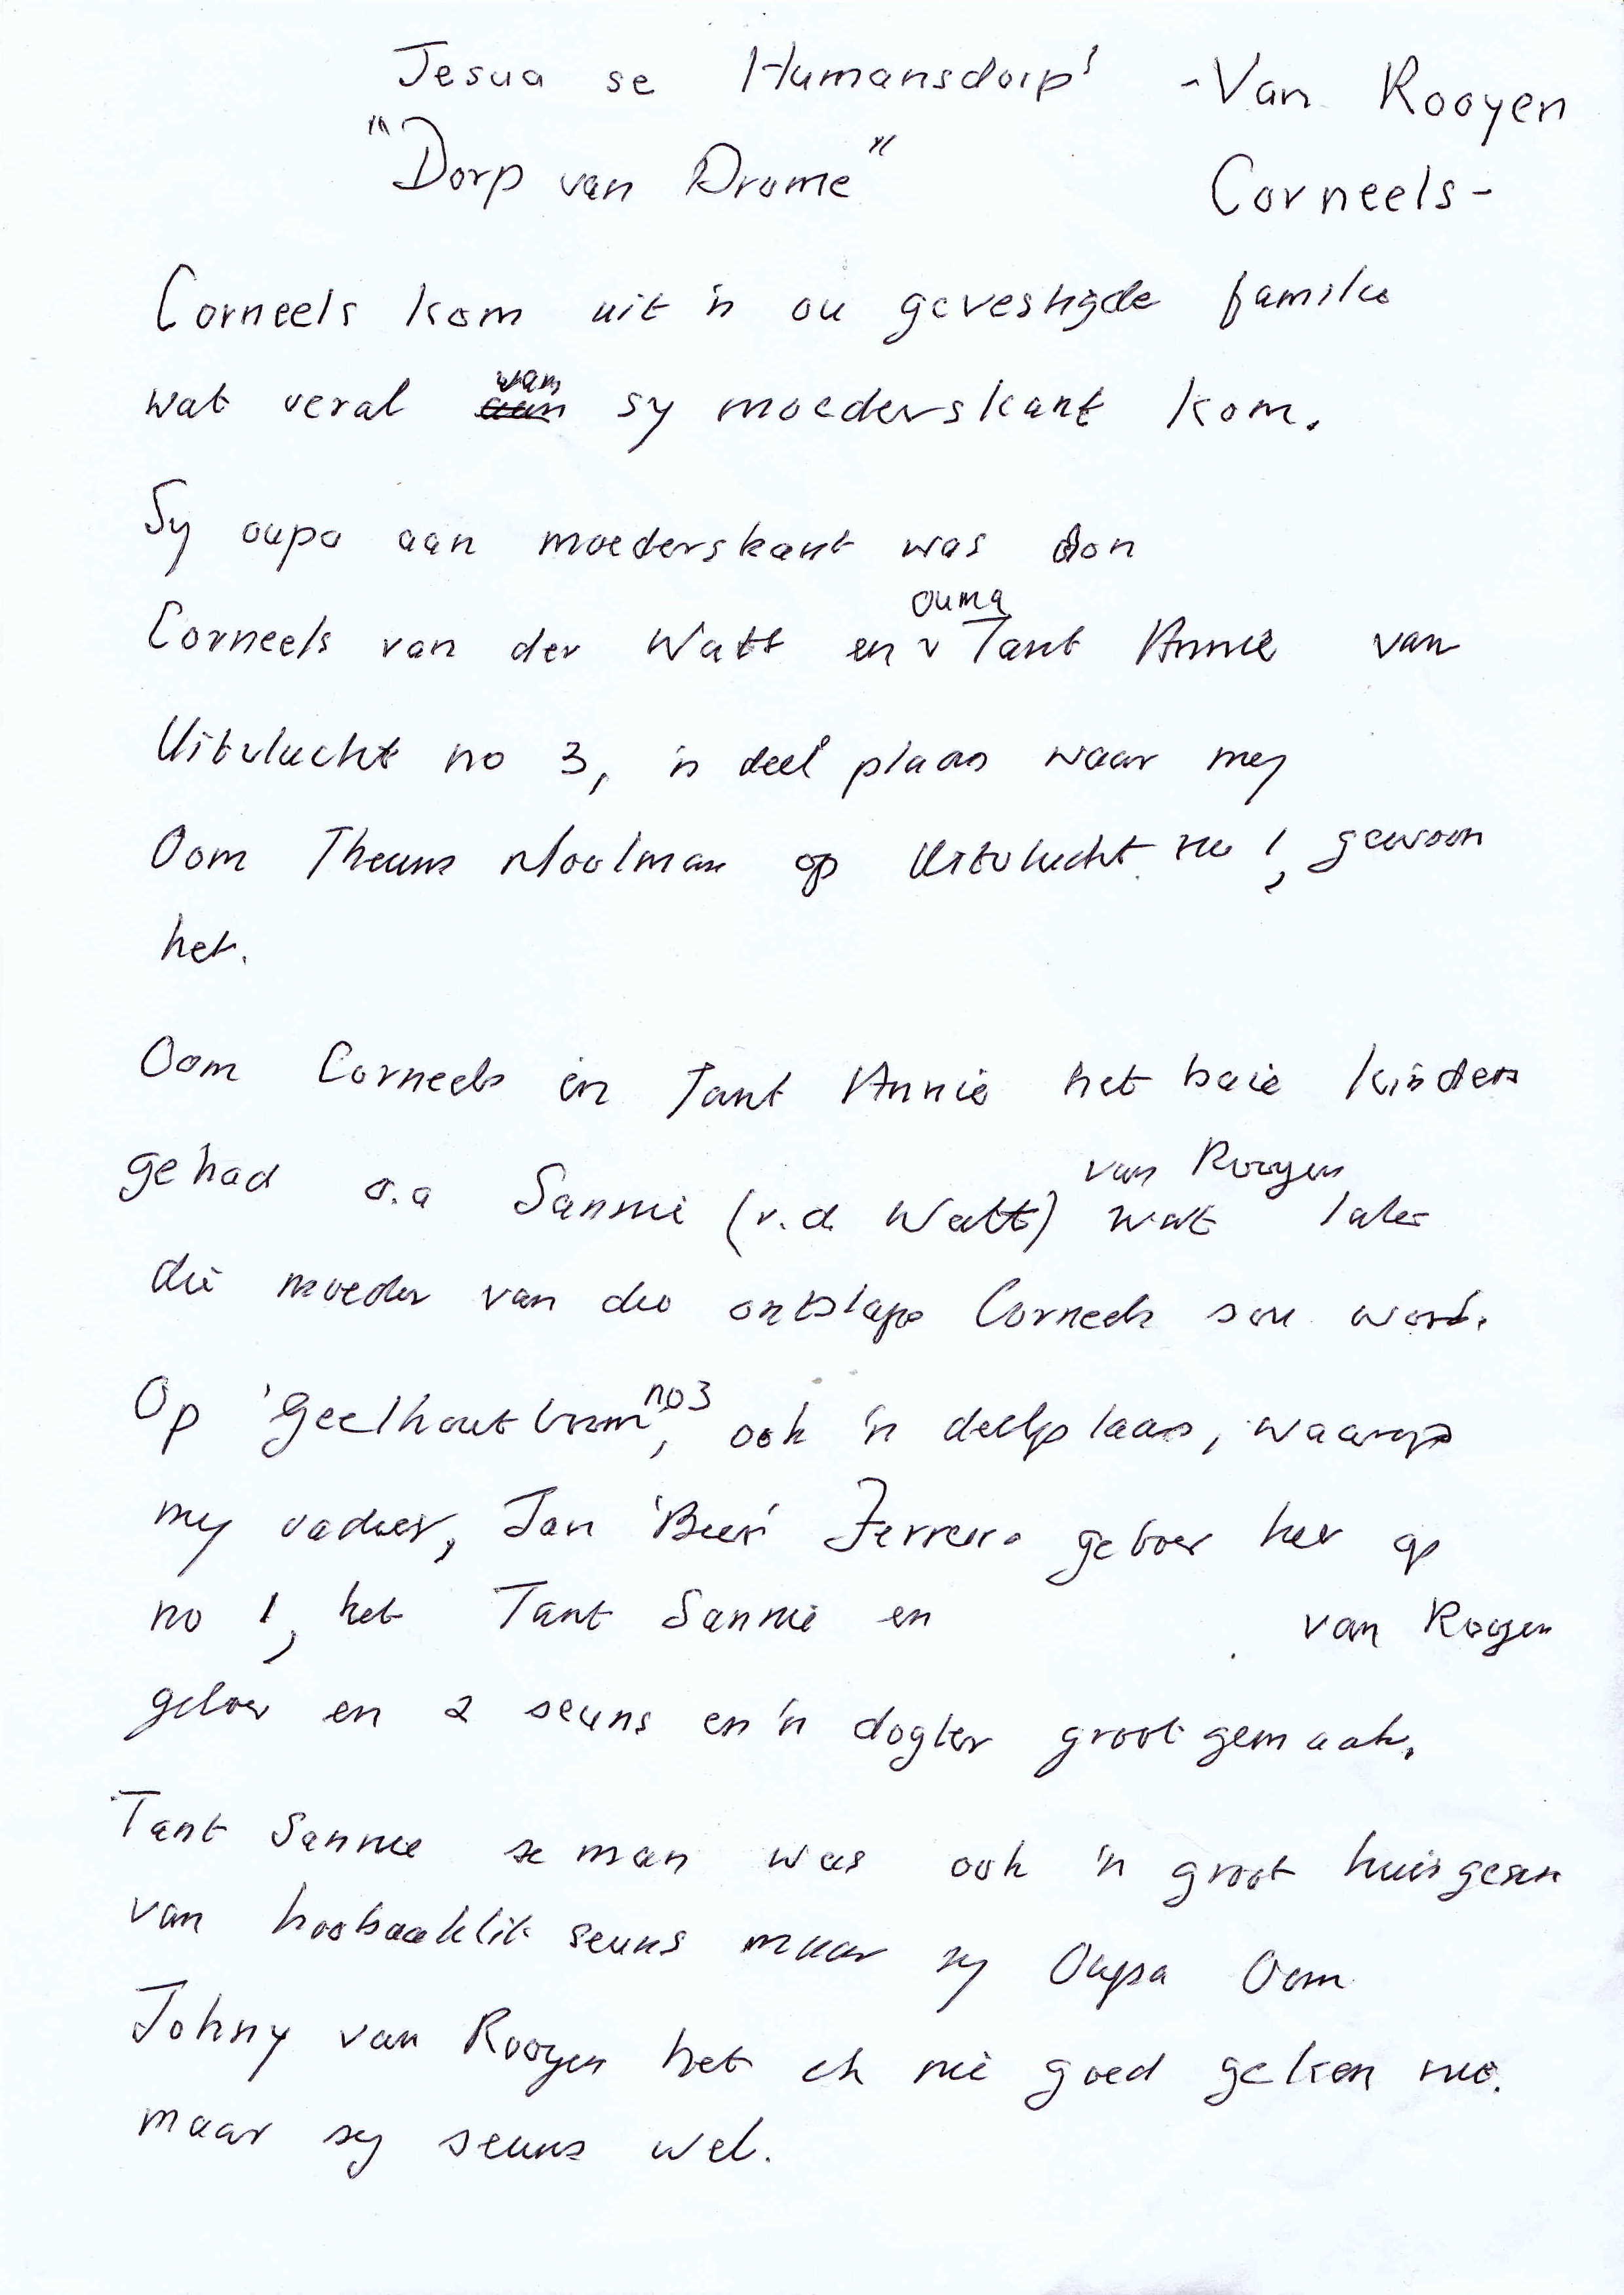 Jesua se Humansdorp' - Van Rooyen
"Dorp van Drome" Corneels -
Corneels kom uit 'n ou gevestigde familie
wat veral van sy moederskant kom.
Sy oupa aan moederskant was
Corneels van der Watt en ouma Tant Annie van
Uitvlucht no 3, 'n deel plaas waar my
Oom Theuns Moolman op Uitvlucht no 1, gewoon
het.
Oom Corneels en Tant Annie het baie kinders
gehad o.a Sannie (v.d. Watt) van Rooyen wat later
die moeder van die ontslape Corneels sou word.
Op 'Geelhoutboom no 3, ook 'n deelplaas, waarop
my vader, Jan Ferreira geboer het op
no 1, het Tant Sannie en van Rooyen
geboer en 2 seuns en 'n dogter grootgemaak.
Tant Sannie se man was ook 'n groot huisgesin
van hoofsaaklik seuns maar sy Oupa Oom
Johny van Rooyen het ek nie goed geken nie.
maar sy seuns wel.